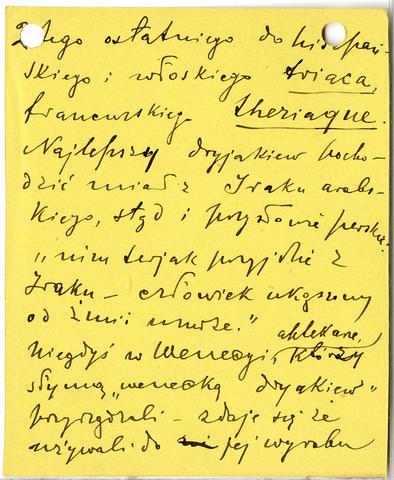 Z tego ostatniego do hiszpań-
skiego i włoskiego triaca,
francuskiego theriaque.
Najlepszy dryjakiew pocho-
dzić miał z Iraku arabs-
kiego, stąd i przysłowie perskie:
„nim terjak przyjdzie z
Iraku – człowiek ukąszony
od żmii umrze."
Niegdyś w Wenecyi, aptekarze, którzy
słynną „wenecką dryjakiew"
przyrządzali – zdaje się że
używali do jej wyrobu